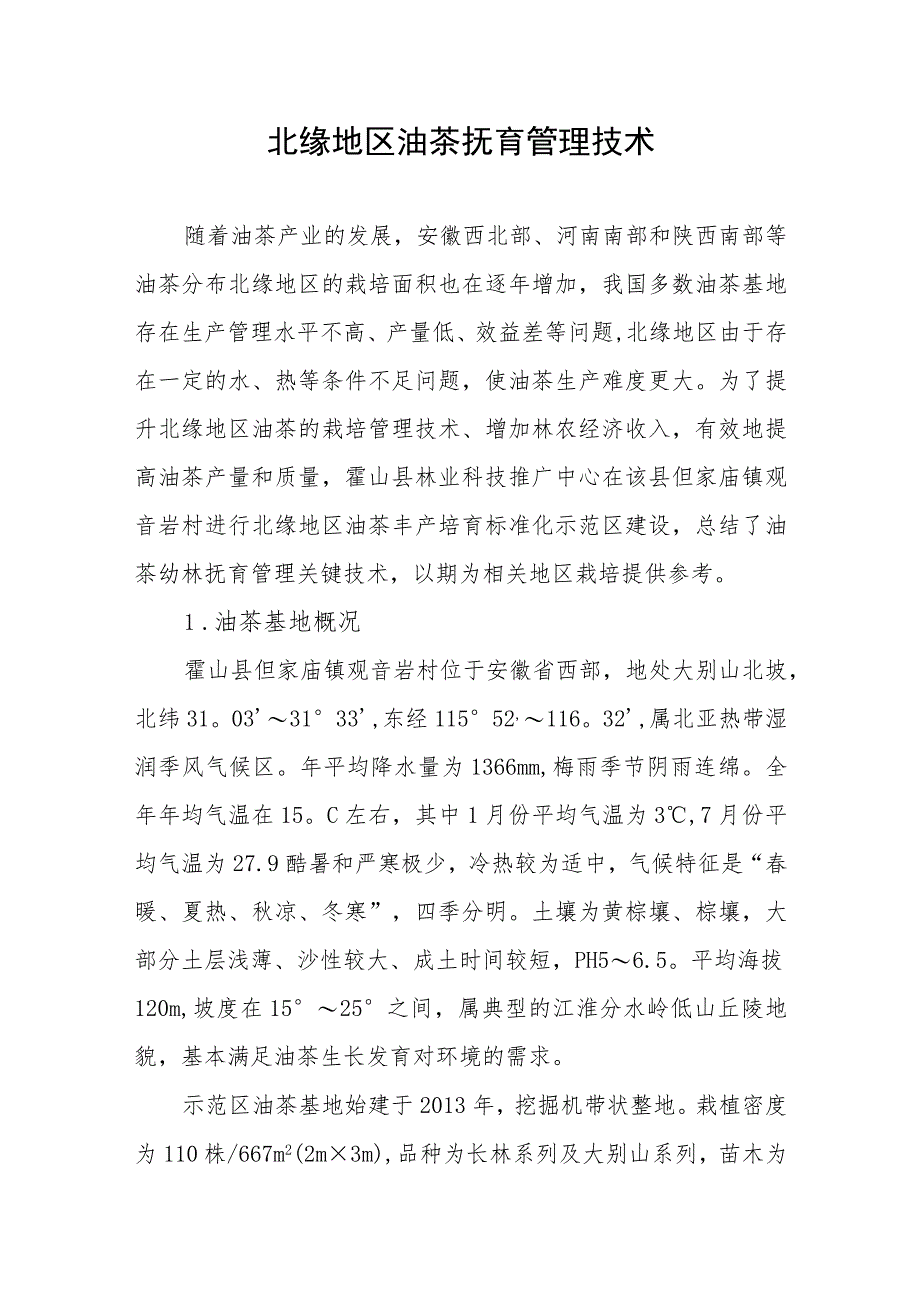 北缘地区油茶抚育管理技术
随着油茶产业的发展，安徽西北部、河南南部和陕西南部等
油茶分布北缘地区的栽培面积也在逐年增加，我国多数油茶基地
存在生产管理水平不高、产量低、效益差等问题,北缘地区由于存
在一定的水、热等条件不足问题，使油茶生产难度更大。为了提
升北缘地区油茶的栽培管理技术、增加林农经济收入，有效地提
高油茶产量和质量，霍山县林业科技推广中心在该县但家庙镇观
音岩村进行北缘地区油茶丰产培育标准化示范区建设，总结了油
茶幼林抚育管理关键技术，以期为相关地区栽培提供参考。
1.油茶基地概况
霍山县但家庙镇观音岩村位于安徽省西部，地处大别山北坡，
北纬31。03'～31°33',东经115°52'～116。32',属北亚热带湿
润季风气候区。年平均降水量为1366mm,梅雨季节阴雨连绵。全
年年均气温在15。C左右，其中1月份平均气温为3℃,7月份平
均气温为27.9酷暑和严寒极少，冷热较为适中，气候特征是“春
暖、夏热、秋凉、冬寒”，四季分明。土壤为黄棕壤、棕壤，大
部分土层浅薄、沙性较大、成土时间较短，PH5～6.5。平均海拔
120m,坡度在15°～25°之间，属典型的江淮分水岭低山丘陵地
貌，基本满足油茶生长发育对环境的需求。
示范区油茶基地始建于2013年，挖掘机带状整地。栽植密度
为110株/667m²(2m×3m),品种为长林系列及大别山系列，苗木为